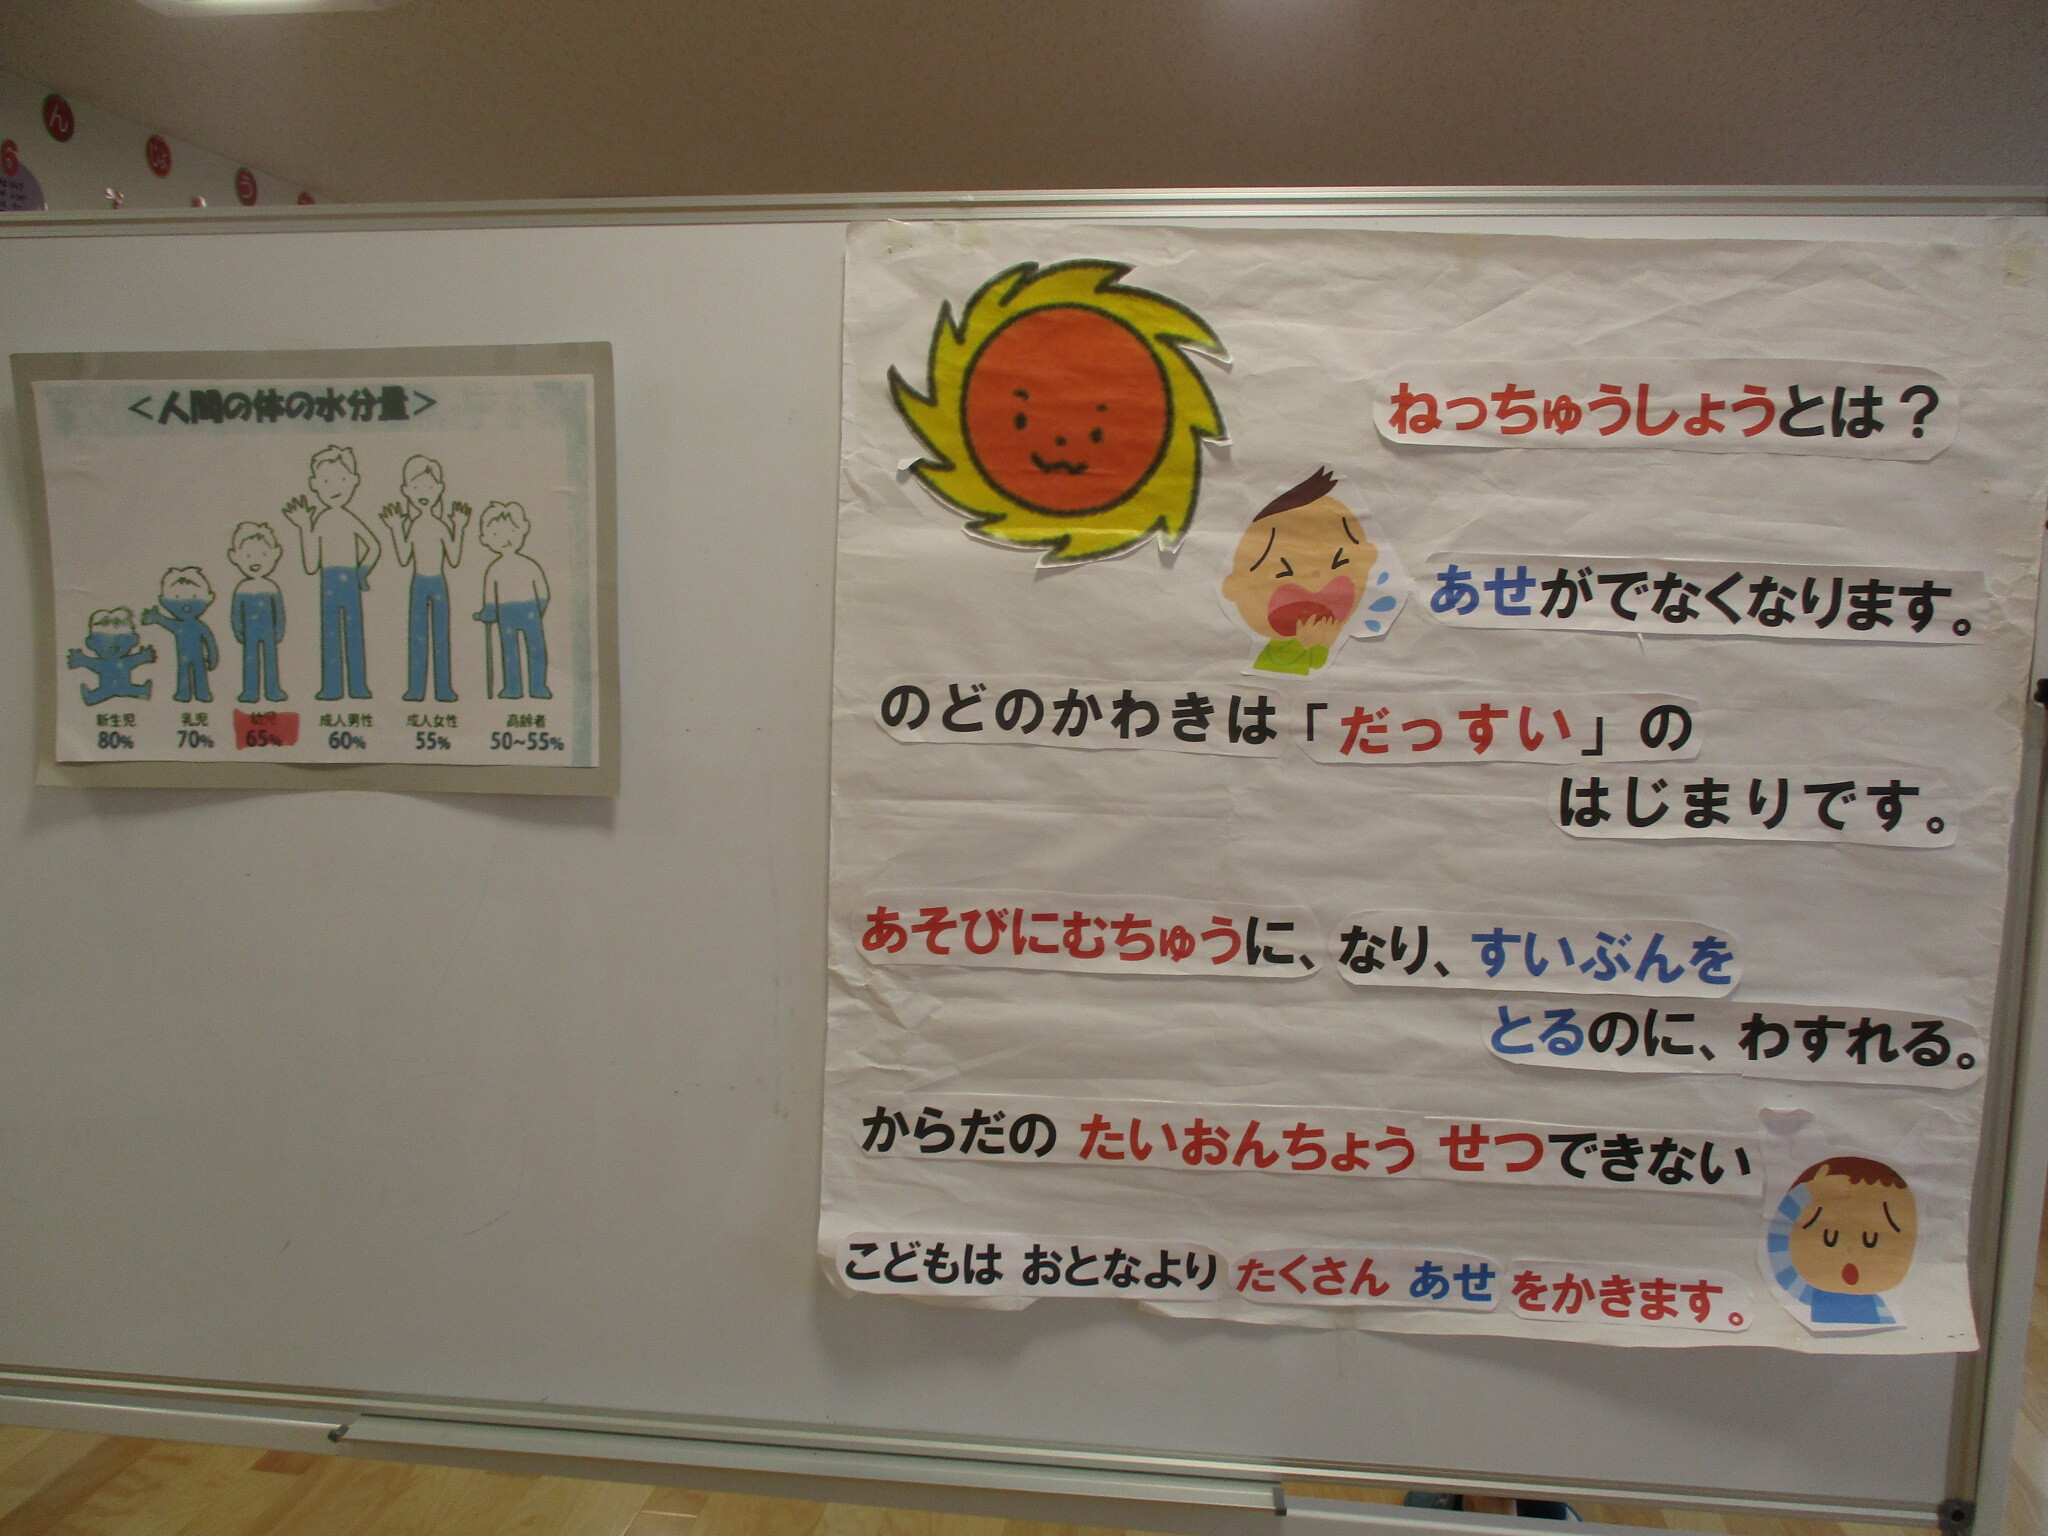 ん
じょ
う
6
<人間の体の水分量>
新生児 乳児 幼児 成人男性 成人女性 高齢者
80% 70% 65% 60% 55% 50~55%
ねっちゅうしょうとは？
あせがでなくなります。
のどのかわきは「だっすい」の
はじまりです。
あそびにむちゅうに、なり、すいぶんを
とるのに、わすれる。
からだの たいおんちょう せつできない
こどもは おとなより たくさん あせ をかきます。